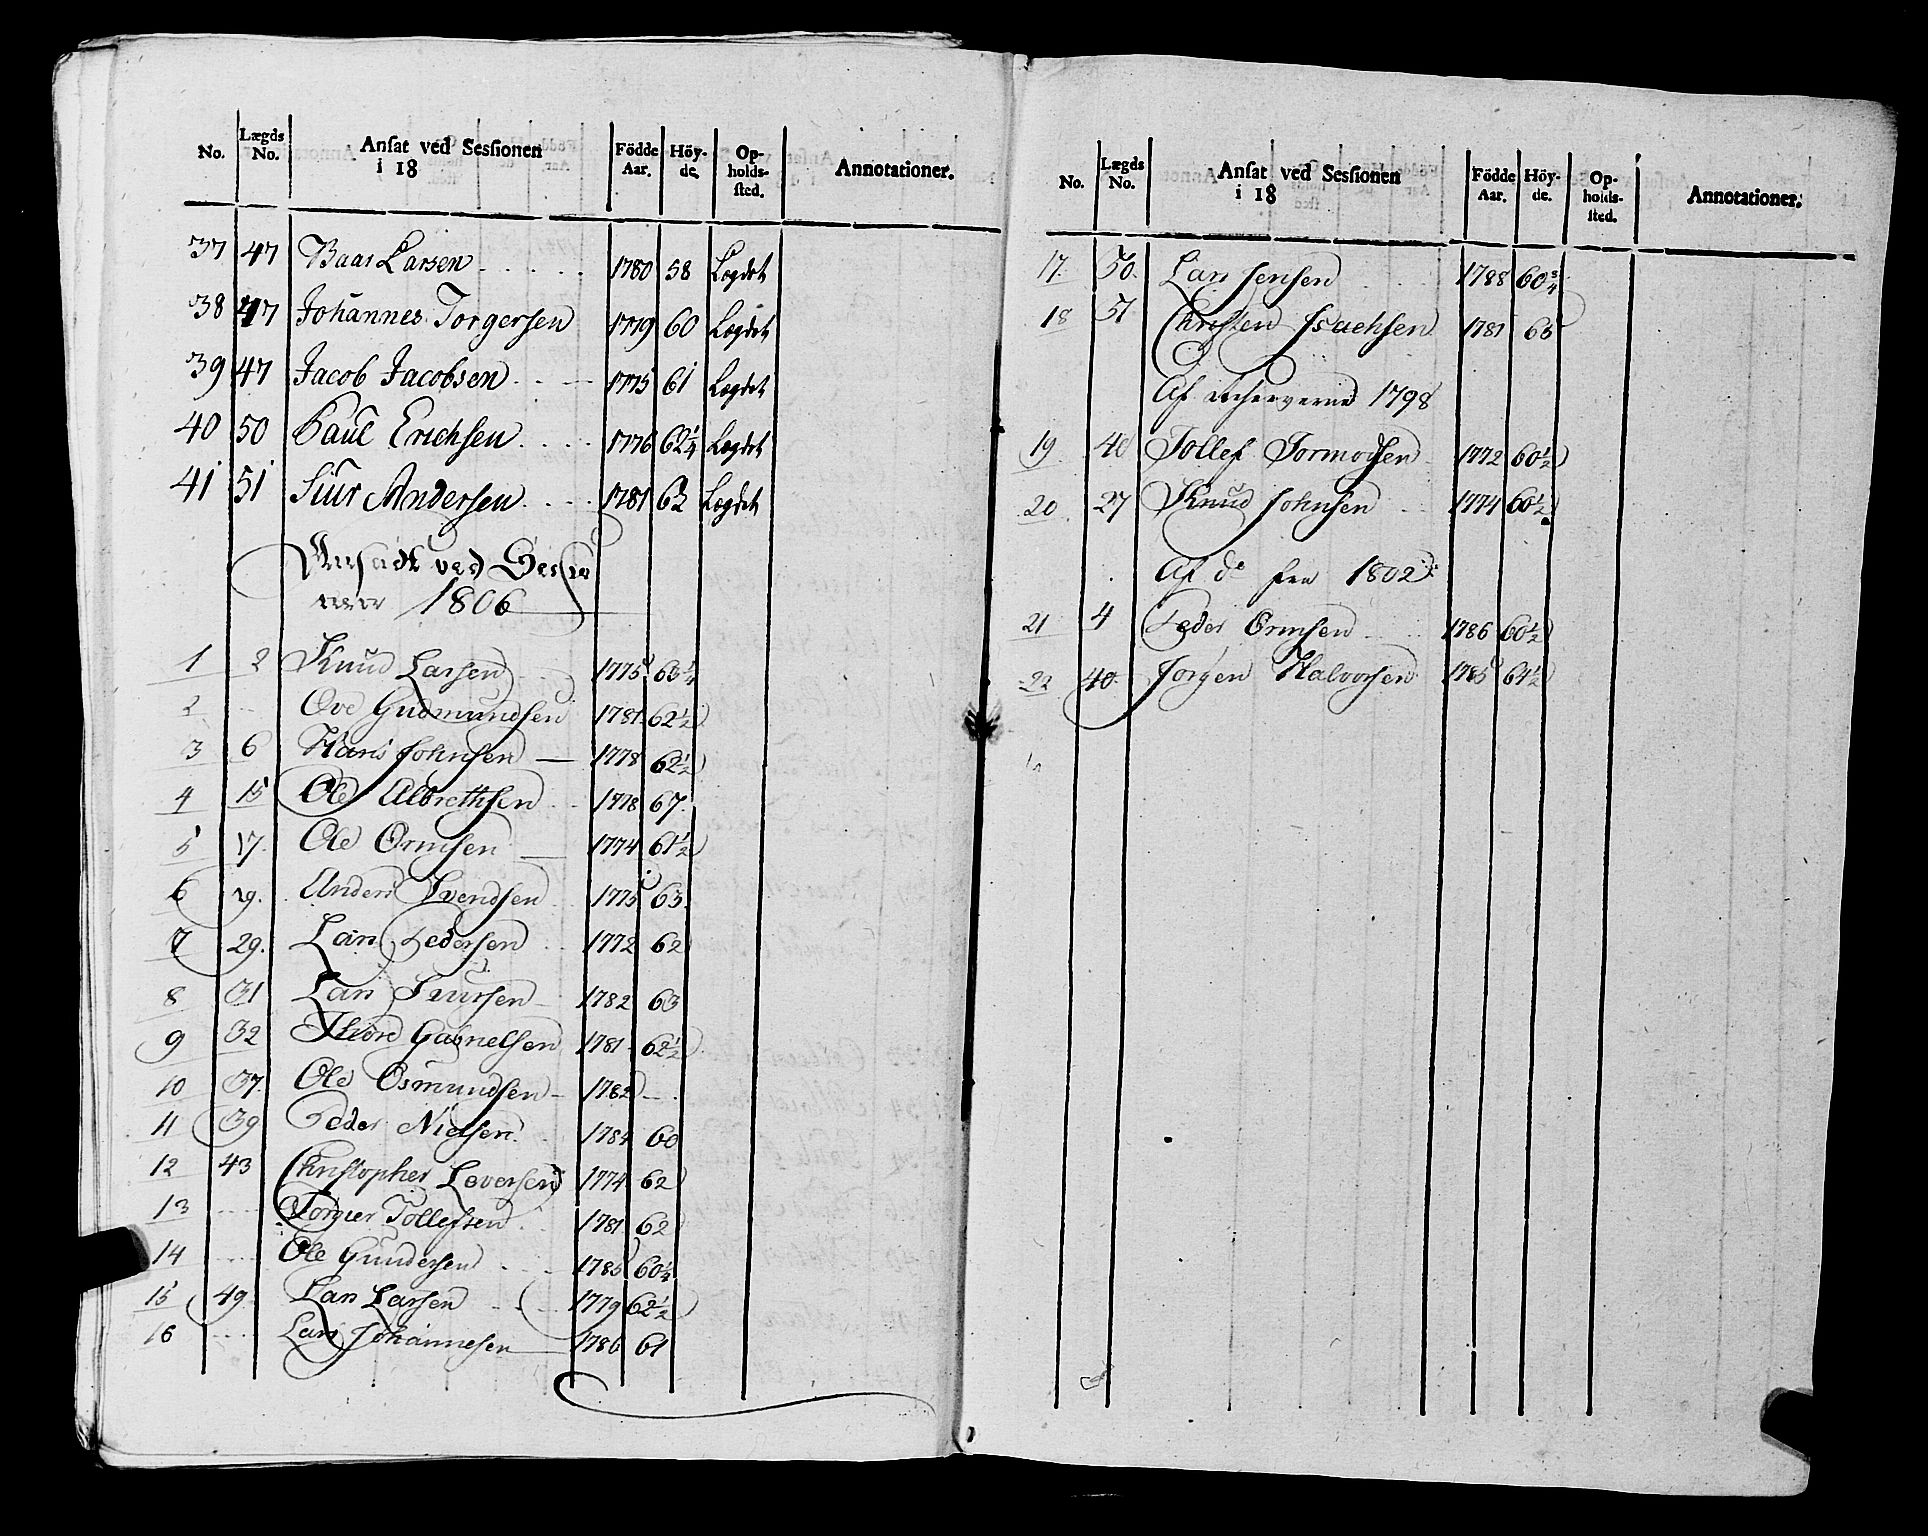 No. Lægds No. Ansat ved Sessionen i 18 Födde Aar. Höyde. Opholdssted. Annotationer.
37 47 Baar Larsen 1780 58 Lægdet
38 47 Johannes Torgersen 1779 60 Lægdet
39 47 Jacob Jacobsen 1775 61 Lægdet
40 50 Paul Erichsen 1776 62 1/4 Lægdet
41 51 Siur Andersen 1781 63 Lægdet
Ansadt ved Sessio
nen 1806
1 2 Knud Larsen 1775 63 1/4
2 Ove Gudmundsen 1781 62 1/2
3 6 Hans Johnsen 1778 62 1/2
4 15 Ole Albrethsen 1778 67
5 17 Ole Ormsen 1774 61 1/2
6 19. Anders Svendsen 1775 63
7 29. Lars Pedersen 1772 62
8 31 Lars Siursen 1782 63
9 32 Thore Gabrielsen 1781 62 1/2
10 37. Ole Osmundsen 1782
11 39 Peder Nielsen 1784 60
12 43 Christopher Loversen 1774 62
13 Torgier Tollefsen 1781 62
14 Ole Gundersen 1785 60 1/4
15 49 Lars Larsen 1779 62 1/2
16 Lars Johannesen 1786 61
No. Lægds No. Ansat ved Sessionen i 18 Födde Aar. Höyde. Opholdssted. Annotationer.
17. 50. Lars Jensen 1788 60 3/4
18 51 Christen Isachsen 1781 65
Af 1798
19 40 Tollef Tormodsen 1772 60 1/2
20 27 Knud Johnsen 1774 60 1/2
Af do fra 1802
21 4 Peder Ormsen 1786 60 1/2
22 40 Jørgen Halvorsen 1785 64 1/2